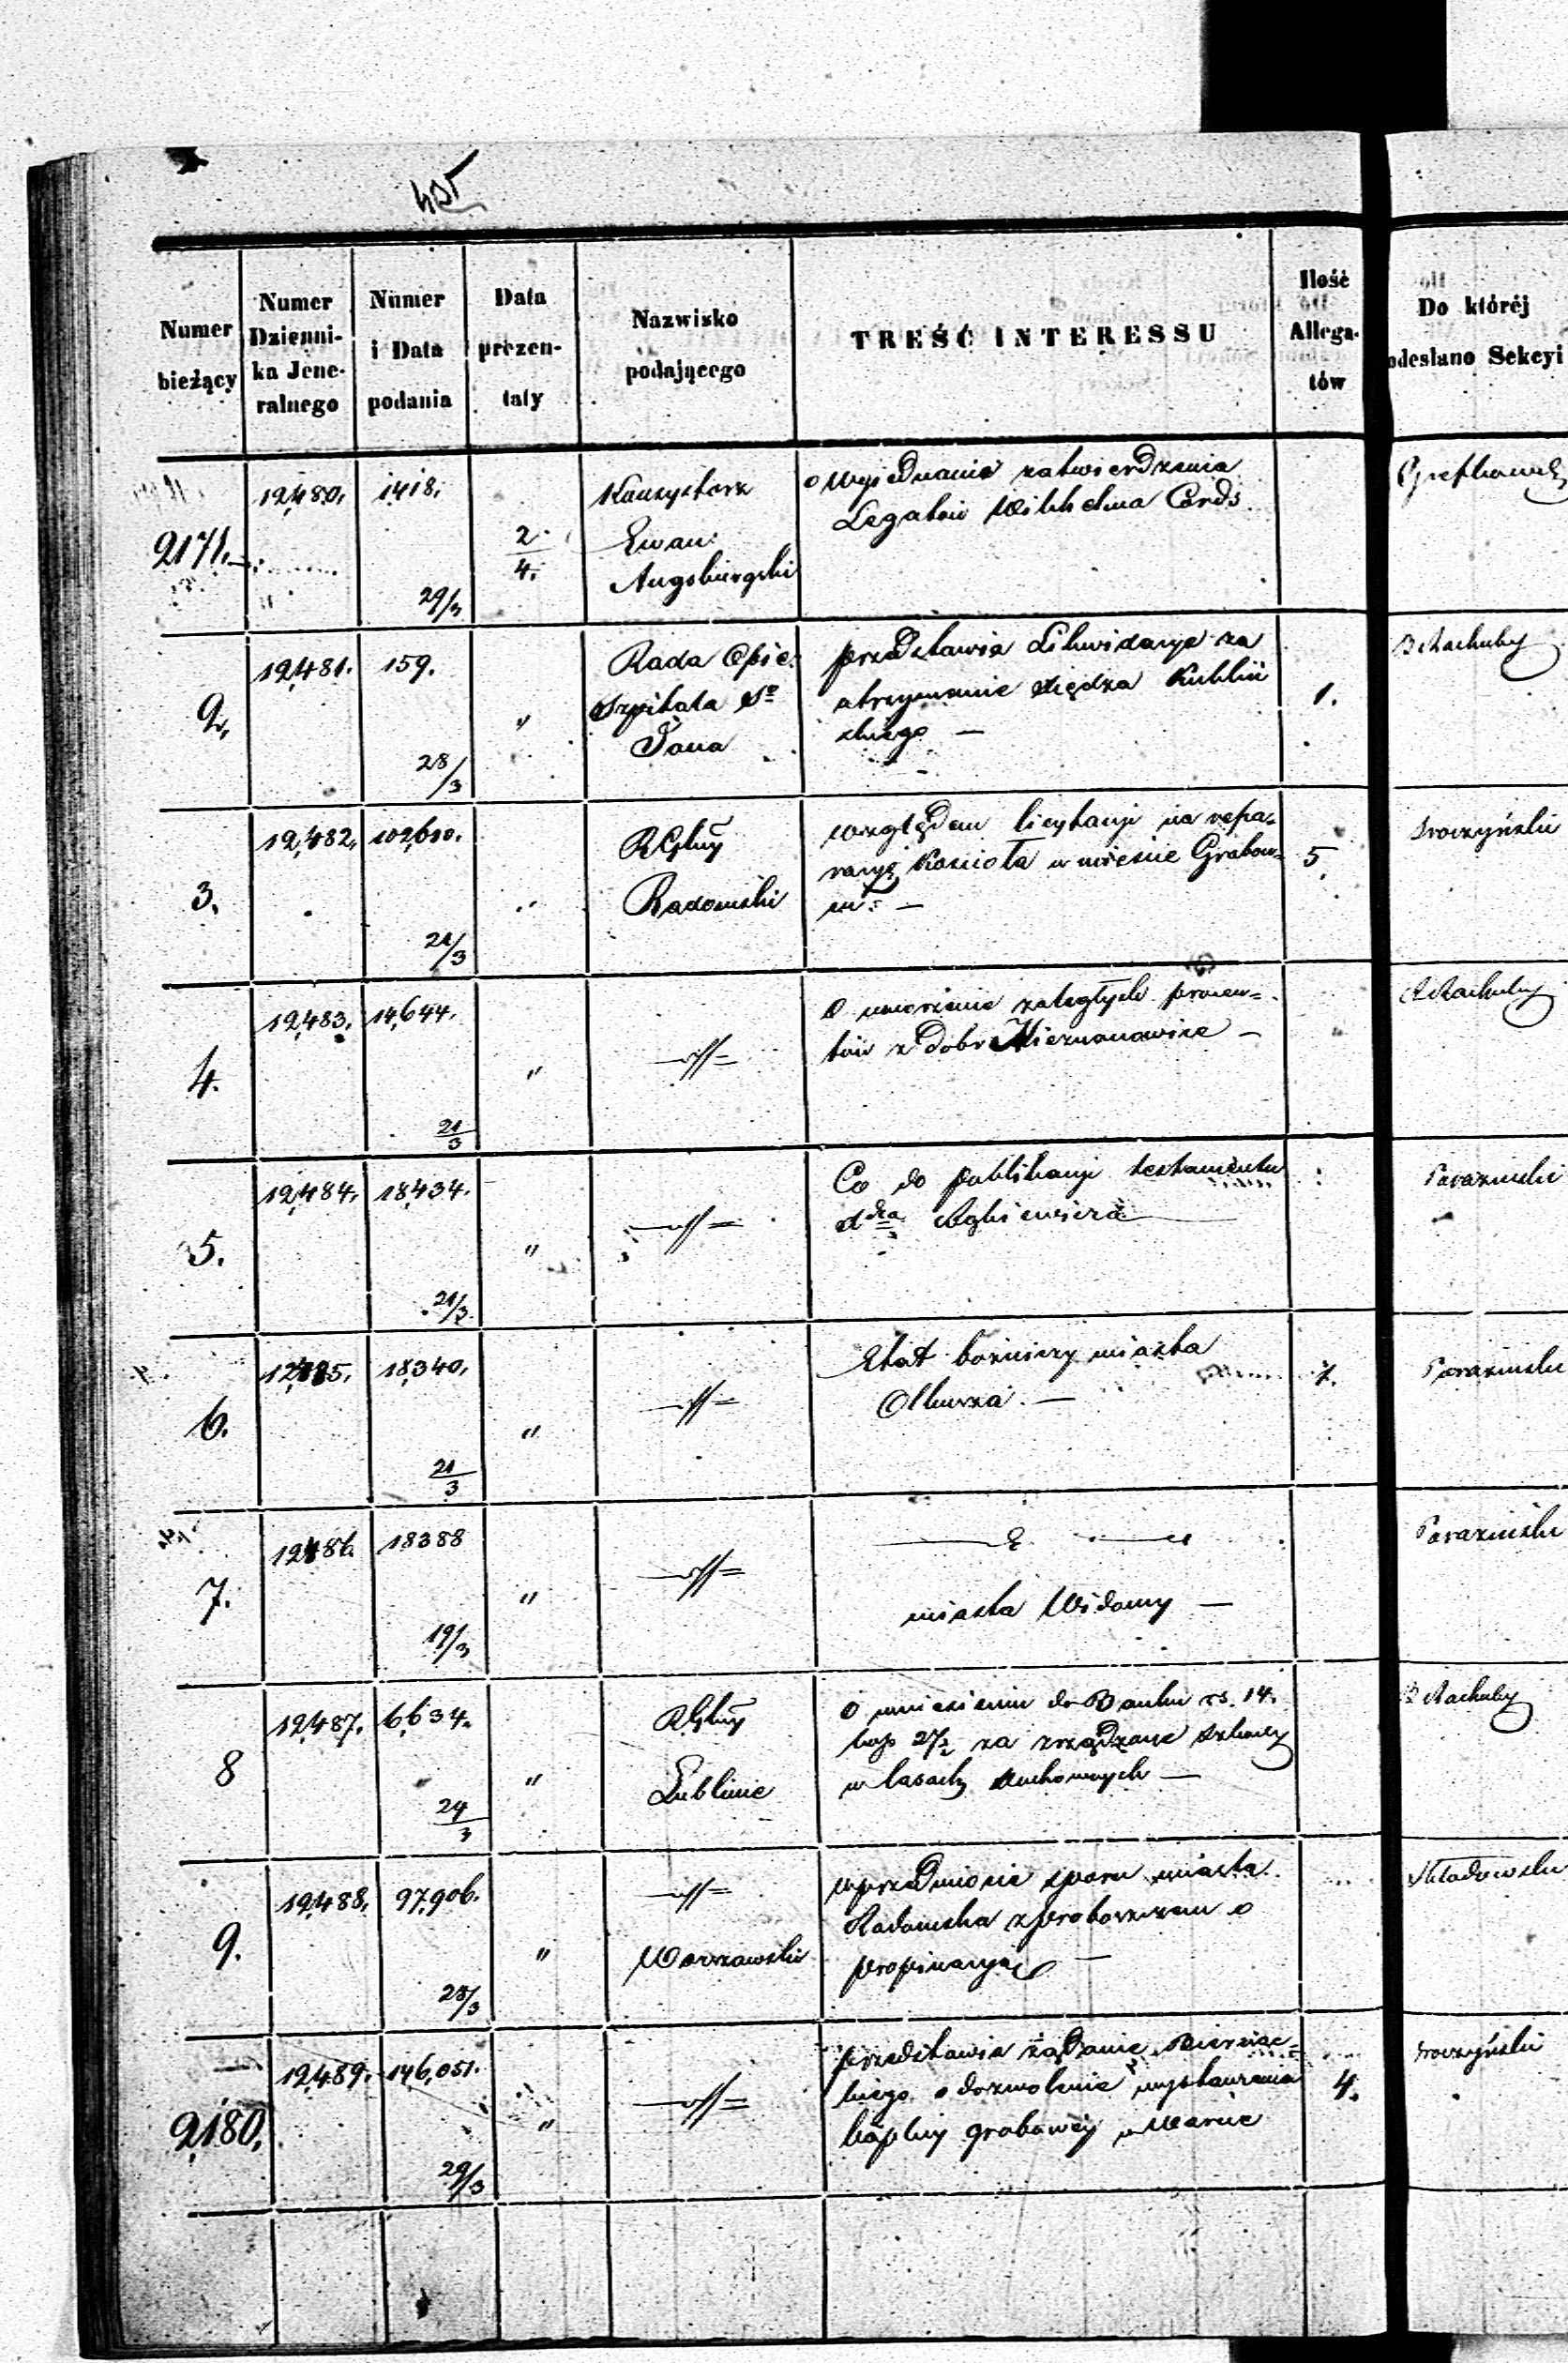 405
Numer bieżący
Numer Dzienni- ka Jene- ralnego
Numer i Data podania
Data prezen- taty
Nazwisko podającego
TREŚĆ INTERESSU
Ilość Allega- tów
Do któréj odesłano Sekcyi
2171.
12,480.
1418.
29/3
2/4.
Konsystorz
Ewan:
Augsburgski
o wyjednanie zatwierdzenia
Legatów Wilhelma Cords
2.
12,481.
159.
28/3
"
Rada Opie:
Szpitala Sgo
Jana
przedstawia Likwidacye za
utrzymanie Księdza Kubliń
skiego —
1.
B Rachuby
3.
12,482.
102,610.
21/3
"
RGlny
Radomski
względem licytacyi na repa-
racyę Kościoła w mieście Grabow-
5.
Sroczyński
4.
12,483.
14,644.
21/3
"
O umorzenie zaległych procen-
tów z dobr Mierzanowice —
Rachuby
5.
12,484.
18,434.
21/3
"
Co do publikacyi testamentu
Parazinski
6.
12,485.
18,340.
21/3
"
Etat bożniczy miasta
Olkusza. —
1.
Parazinski
7.
12,486.
18388
19/3
"
miasta Widawy —
Parazinski
8
12,487.
6,634.
24/3
"
RGlny
Lublinie
O wniesieniu do Banku rs. 14.
kop 27½ za zrządzone szkody
w lasach duchownych —
B Rachuby
9.
12,488.
97,906.
25/3
"
Warszawski
w przedmiocie sporu miasta
Radomska z proboszczem o
propinacyą —
2180.
12,489.
146,051.
29/3
"
przedstawia żądanie Biernac-
kiego o dozwolenie wystawienia
kaplicy grobowéj w Warcie
4.
Sroczyński